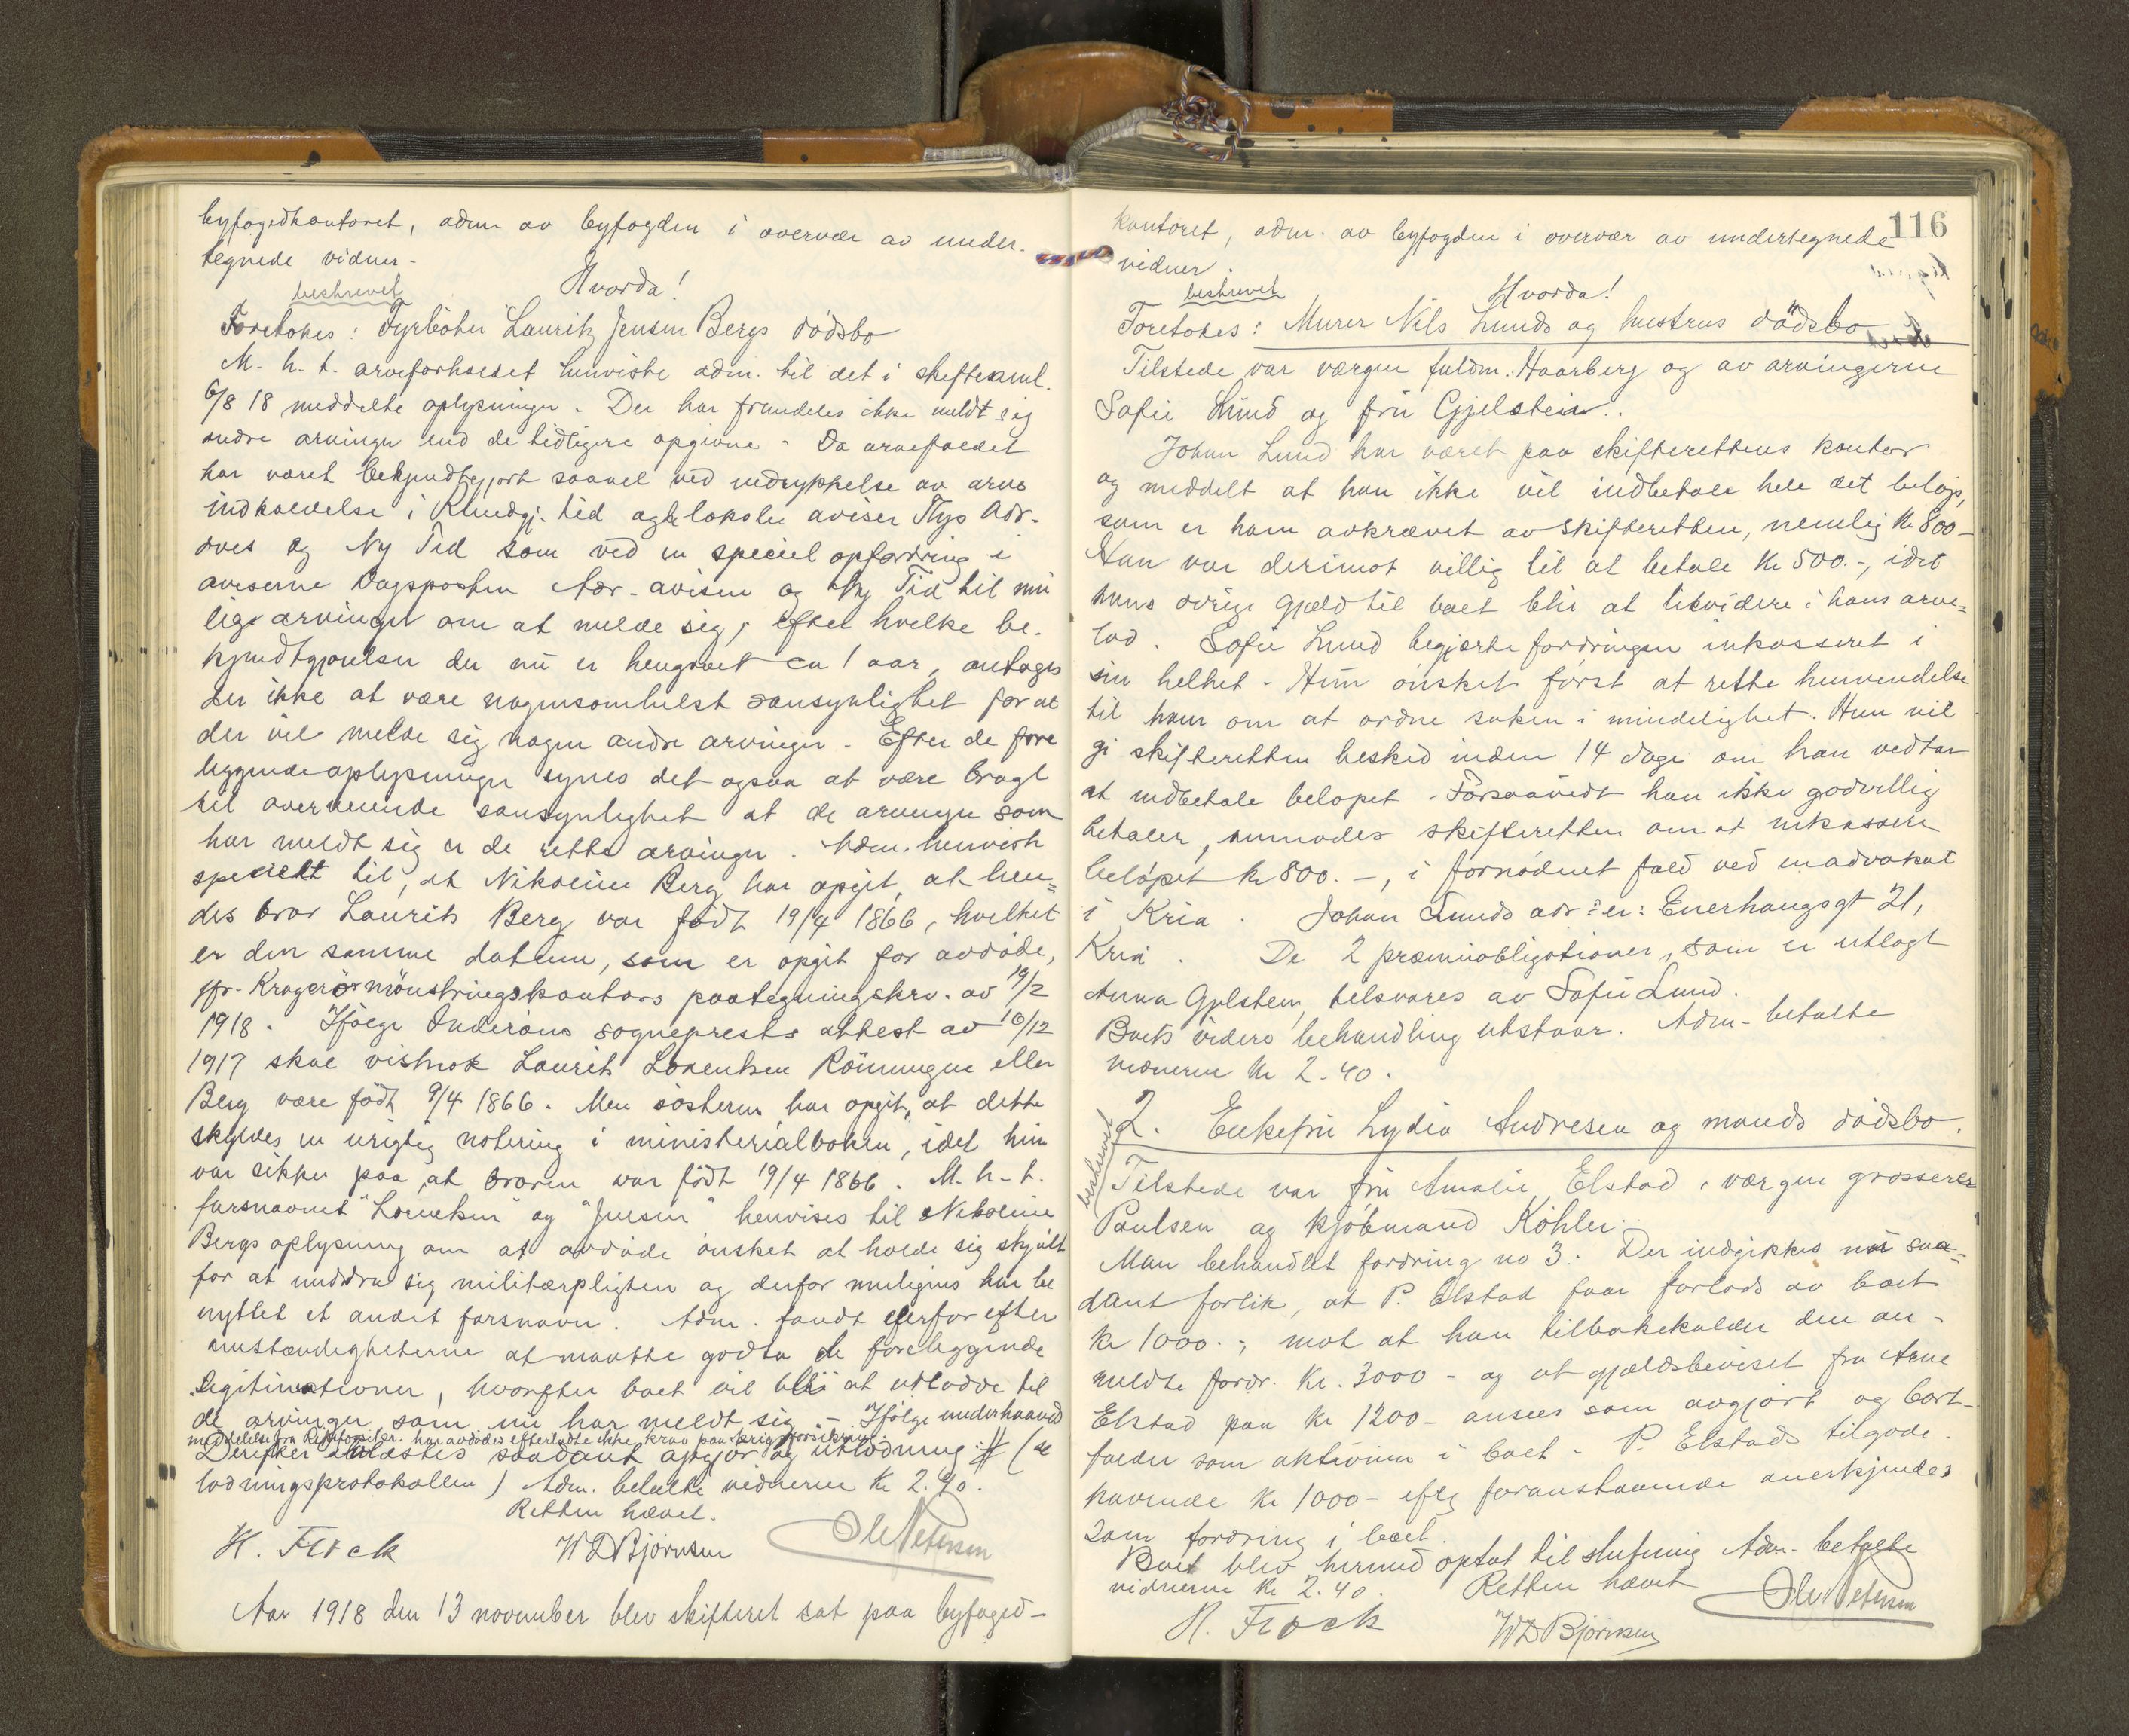 byfogedkontoret, adm av byfogden i overvær av under-
tegnede vidner.
Hvorda!
beskrevet
Foretokes: Fyrbøter Lauritz Jensen Bergs dødsbo
M. h. t. arveforholdet henviste adm. til det i skiftesaml.
6/8 18 meddelte oplysninger. Der har fremdeles ikke meldt sig
andre arvinger end de tidligere opgivne. Da arvefaldet
har været bekjendtgjort saavel ved indrykkelse av arve
indkaldelse i Kundgj. tid og de lokale aviser Ths Adr.
aves og Ny Tid som ved en speciel opfordring i
aviserne Dagsposten Adr-avisen og Ny Tid til mu
lige arvinger om at melde sig, efter hvilke be-
kjendtgjørelser der nu er hengaaet ca 1 aar, antages
der ikke at være nogensomhelst sansynlighet for at
der vil melde sig nogen andre arvinger. Efter de fore
liggende oplysninger synes det ogsaa at være bragt
til overveiende sansynlighet at de arvinger som
har meldt sig er de rette arvinger. Adm. henviste
specielt til, at Nikoline Berg har opgit, at hen=
des bror Laurits Berg var født 19/4 1866, hvilket
er den samme datum, som er opgit for avdøde,
jfr. Kragerø mønstringskontors paategningskrv. av 19/2
1918. Ifølge Inderøens sogneprests attest av 10/12
1917 skal vistnok Laurits Lorentsen Rønningen eller
Berg være født 9/4 1866. Men søsteren har opgit, at dette
skyldes en urigtig notering i ministerialboken, idet hun
var sikker paa, at broren var født 19/4 1866. M. h. t.
farsnavnet "Lorentsen" og "Jensen" henvises til Nikoline
Bergs oplysning om at avdøde ønsket at holde sig skjult
for at unddra sig militærpligten og derfor muligens har be
nyttet et andet farsnavn. Adm. fandt derfor efter
omstændigheterne at maatte godta de foreliggende
legitimationer, hvorefter boet vil bli at utlodde til
de arvinger som nu har meldt sig. - Ifølge underhaand
meddelelse fra Rikstrygdev. har avdødes efterladte ikke krav paa krigsforsikring.
Derefter saadant opgjør og utlodning: # (se
lodningsprotokollen) Adm. betalte vidnerne Kr 2.40.
Retten hævet.
H. Flock W D Bjørnsen Ole Petersen
Aar 1918 den 13 november blev skifteret sat paa byfoged-
116
kontoret, adm. av byfogden i overvær av undertegnede
vidner.
Hvorda!
beskrevet
Foretokes: Murer Nils Lunds og hustrus dødsbo
Tilstede var værgen fuldm. Haarberg og av arvingerne
Sofie Lund og fru Gjelstein.
Johan Lund har været paa skifterettens kontor
og meddelt at han ikke vil indbetale hele det beløp,
som er ham avkrævet av skifteretten, nemlig Kr 800-
Han var derimot villig til at betale Kr 500.-, idet
hans øvrige gjæld til boet blir at likvidere i hans arve=
lod. Sofie Lund begjærte fordringen inkasseret i
sin helhet. Hun ønsket først at rette henvendelse
til ham om at ordne saken i mindelighet. Hun vil
gi skifteretten besked inden 14 dage om han vedtar
at indbetale beløpet. Forsaavidt han ikke godvillig
betaler, anmodes skifteretten om at inkassere
beløpet kr 800.-, i fornødent fald ved en advokat
i Kria. Johan Lunds adr: er: Enerhaugsgt 21,
Kria. De 2 præmieobligationer, som er utlagt
Anna Gjelstein, tilsvares av Sofie Lund.
Boets videre behandling utstaar. Adm. betalte
vidnerne Kr 2.40.
beskrevet
2. Enkefru Lydia Andresen og mands dødsbo.
Tilstede var fru Amalie Elstad, værgen grosserer
Paulsen og kjøbmand Køhler.
Man behandlet fordring no 3. Der indgikkes nu saa=
dant forlik, at P. Elstad faar forlods av boet
kr 1000.-, mot at han tilbakekalder den an-
meldte fordr. Kr. 3000 - og at gjældsbeviset fra Arne
Elstad paa Kr 1200 - ansees som avgjort og bort-
falder som aktivum i boet. P. Elstads tilgode-
havende Kr 1000- eftf foranstaaende anerkjendes
som fordring i boet.
Boet blev hermed optat til slutning Adm. betalte
vidnerne Kr 2.40. Retten hævet
H. Flock W D Bjørnsen Ole Petersen